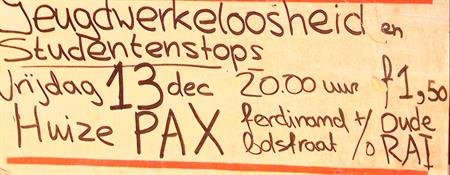 Jeugdwerkeloosheid en
Studentenstops
Vrijdag 13 dec 20.00 uur f 1,50
Huize PAX ferdinand bolstraat t/o Oude RAI